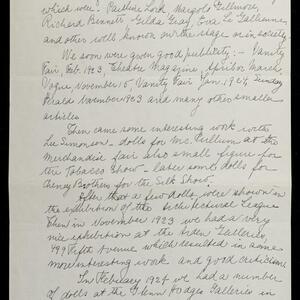 which were: Pauline Lord, Margolo Gillmore,
Richard Bennett, Gilda Gray, Eva Le Gallienne,
and others well known on the stage or in society.
We soon were given good publicity: - Vanity
Fair, Feb. 1923, Theatre Magazine, March,
Vogue, November 15, Vanity Fair Jan. 1924, Sunday
Herald November 1923 and many other smaller
articles.
Then came some interesting work with
Lee Simonson - dolls for McCallum at the
Merchandise Fair also small figures for
the Tobacco Show - later some dolls for
Cheney Brothers for the Silk Show.
After that a few dolls were shown in
the exhibition of the Architectural League
Then in November 1923 we had a very
nice exhibition at the Arden Galleries
499 Fifth Avenue which resulted in some
more interesting work and good criticisms.
In February 1924 we had a number
of dolls at the Glenn Hodges Galleries in